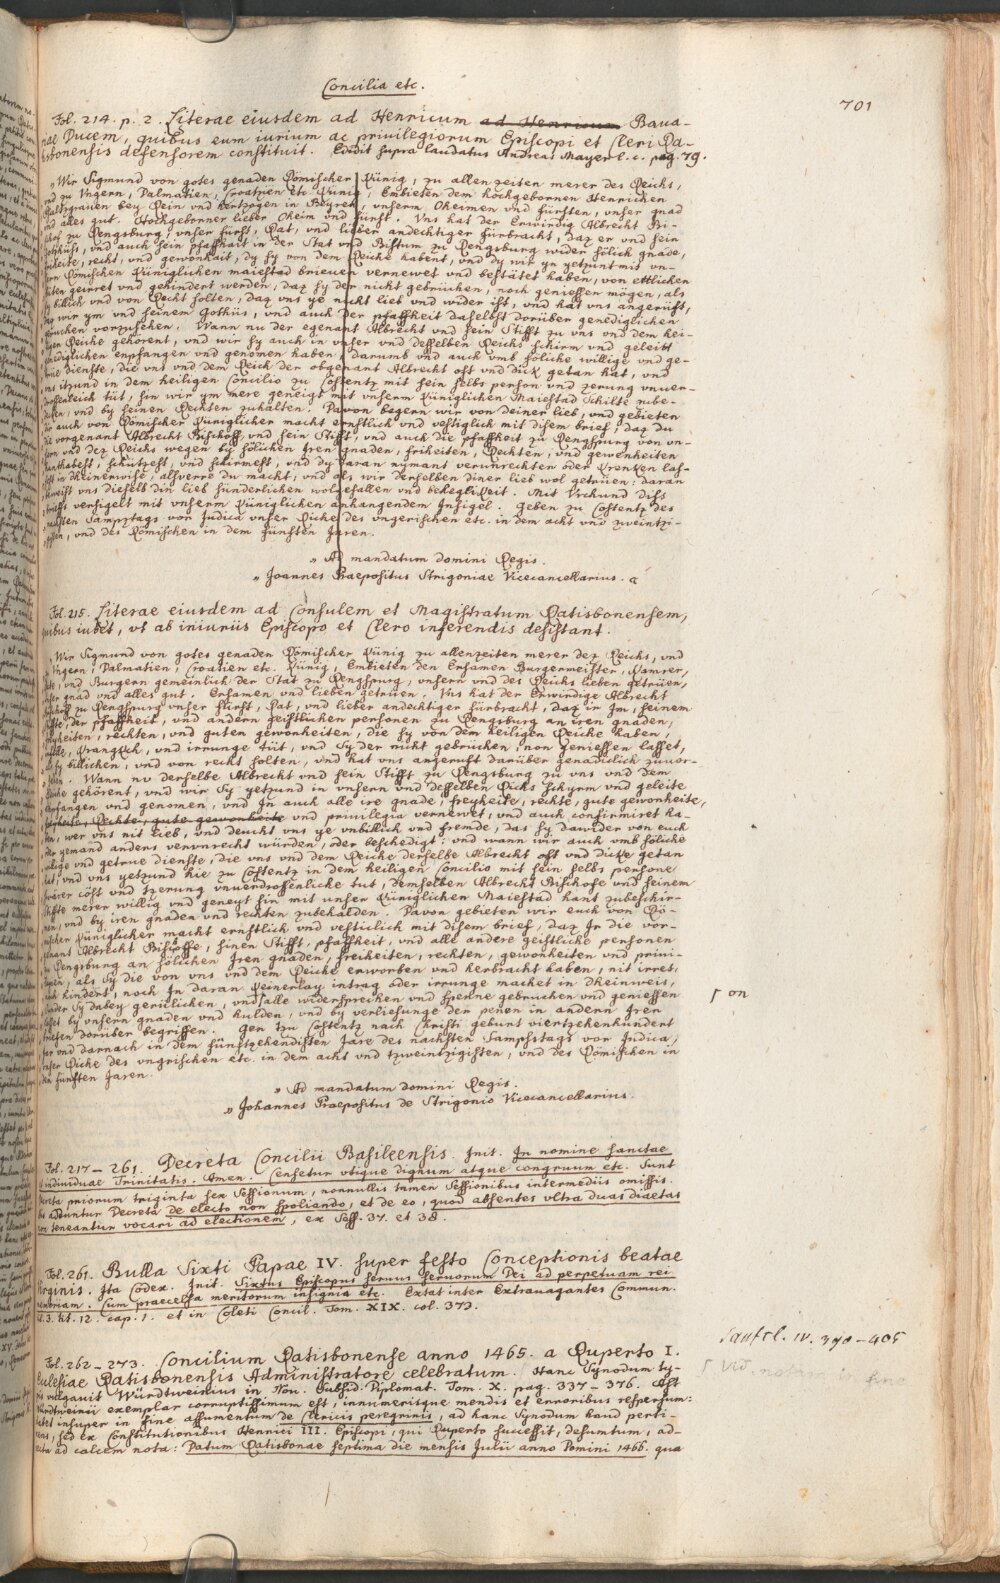 Concilia etc.
701
Fol. 214. p. 2. Literae eiusdem ad Henricum ad Henricum Bava-
riae Ducem, quibus eum iurium ac privilegiorum Episcopi et Cleri Ra-
tisbonensis defensorem constituit. Edidit supra laudatus Andreas Mayer l. c. pag. 79.
„Wir Sigmund von gotes genaden Römischer Künig, zu allen zeiten merer des Reichs,
und zu Vngern, Dalmatien, Croatzien etc. Künig, Embieten dem hochgebornen Henrichen
Pfaltzgrauen bey Rein und Hertzogen in Beyren, unserm Oheimen und fürsten, unser gnad
und alles gut. Hochgeborner lieber Oheim und fürst. Vns hat der Erwirdig Albrecht Bi-
schof zu Rengsburg, unser fürst, Rat, und lieber andechtiger fürbracht, daz er und sein
Gothüs, und auch sein pfaffhait in der Stat und Bistum zu Rengsburg wider sölich gnade,
friheite, recht, und gewonhait, dy sy von dem Reiche habent, und dy wir yn yetzunt mit vn-
sern Römischen Küniglichen maiestad brieuen vernewet und bestätet haben, von ettlichen
leüten geirret und gehindert werden, daz sy der nicht gebruchen, noch geniessen mögen, als
sy billich und von Recht solten, daz uns ye nicht lieb und wider ist, und hat uns angerüfft,
daz wir ym und seinem Gothüs, und auch der pfaffheit daselbst dorüber genediglichen
geruchen vorzusehen. Wann nu der egenant Albrecht und sein Stifft zu uns und dem hei-
ligen Reiche gehorent, und wir sy auch in unser und desselben Reichs schirm und geleibt
gnediglichen enpfangen und genomen haben, darumb und auch umb söliche willige und ge-
trüe dienste, die uns und dem Reich der obgenant Albrecht oft und dick getan hat, und
uns itzund in dem heiligen Concilio zu Costentz mit sein selbs person und zerung unuer-
drossenleich tüt, sin wir ym mere geneigt mit unserm Küniglichen Maiestad Schilte zube-
decken, und by seinen Rechten zuhalten. Davon begern wir von deiner lieb, und gebieten
dir auch von Römischer Küniglicher macht ernstlich und vestiglich mit disem brief, daz du
die vorgenant Albrecht Bischoff, und sein Stifft, und auch die pfaffheit zu Rengspurg von un-
sern und dez Reichs wegen by sölichen Iren gnaden, friheiten, Rechten, und gewenheiten
hanthabest, schützest, und schirmest, und dy daran nymant verunrechten oder krenken las-
sest in dheinerwise, alsverre du macht, und als wir derselben diner lieb wol getrüen; daran
beweist uns dieselb din lieb sünderlichen wolgefallen und beheglikeit. Mit Vrchund diss
briefs versigelt mit unserm Küniglichen anhangendem Insigol. Geben zu Costentz des
nechsten Sampztags vor Judica unser Riche des ungerischen etc. in dem acht und zweintzi-
gsten, und des Römischen in dem fünften Jaren.
„ Ad mandatum domini Regis.
„ Joannes Praepositus Strigoniae Vicecancellarius. a
Fol. 215. Literae eiusdem ad Consulem et Magistratum Ratisbonensem,
quibus iubet, ut ab iniuriis Episcopo et Clero inferendis desistant.
„Wir Sigmund von gotes genaden Römischer Künig zu allenzeiten merer dez Reichs, und
zu Vngern, Dalmatien, Croatien etc. Künig, Embieten den Ersamen Burgermeister, Kamrer,
Rete, und Burgern gemeinlich der Stat zu Rengspurg, unsern und des Reichs lieben getrüen,
unser gnad und alles gut. Ersamen und lieben getrüen. Vns hat der Erwirdige Albrecht
Bischoff zu Rengspurg unser fürst, Rat, und lieber andechtiger fürbracht, daz ir Im, seinem
Stiffte, der pfaffheit, und andern geistlichen personen zu Rengsburg an iren gnaden,
freyheiten, rechten, und guten gewonheiten, die sy von dem heiligen Reiche haben,
infelle, krangkch, und irrunge tüt, und Sy der nicht gebrüchen, non geniessen lasset,
als sy billichen, und von recht solten, und hat uns angeruft darüber genadiclich zuuor-
sehen. Wann nu derselbe Albrecht und sein Stifft zu Rengsburg zu uns und dem
Reiche gehörent, und wir Sy yetzund in unsern und desselben Richs schyrm und geleite
empfangen und genomen, und In auch alle ire gnade, freyheite, rechte, gute gewonheite,
freyheite, Rechte, gute gewonheite und priuilegia vernewet, und auch confirmiret ha-
ben, wer uns nit lieb, und deucht uns ye unbillich und fremde, das sy dawider von euch
oder yemand anders verunrecht würden, oder beschedigt: und wann wir auch umb söliche
willige und getrue dienste, die uns und dem Reiche derselbe Albrecht oft und dicke getan
hat, und uns yetzund hie zu Costentz in dem heiligen Concilio mit sein selbs persone
swärer cöst und tzerung unuerdrossenliche tut, demselben Albrecht Bischofe und seinem
Stiffte merer willig und geneyt sin mit unser Küniglichen Maiestad hant zubeschir-
men, und by iren gnaden und rechten zubehalden. Davon gebieten wir euch von Rö-
mischer Küniglicher macht ernstlich und vesticlich mit disem brief, daz Ir die vor-
genant Albrecht Bischoffe, sinen Stifft, pfaffheit, und alle andere geistliche personen
zu Rengsburg an sölichen Iren gnaden, freiheiten, rechten, gewonheiten und priui-
legien, als Sy die von uns und dem Reiche erworben und herbracht haben, nit irret,
noch hindert, noch In daran keinerlay intrag oder irrunge machet in dheinweis,
sünder Sy dabey gerüelichen, und alle widersprechen und spenne gebruchen und geniessen
lasset by unsern gnaden und hulden, und by verliesunge der penen in andern Iren
briefen dorüber begriffen. Gen tzu Costentz nach Christi geburt viertzehenhundert
Jar und darnach in dem fünftzehendisten Jare des nachsten Sampstags vor Judica,
unser Riche des ungrischen etc. in dem acht und tzweintzigisten, und des Römischen in
dem funften Jaren.
┌ on
„ Ad mandatum domini Regis.
„ Johannes Praepositus de Strigonio Vicecancellarius.
Fol. 217 – 261. Decreta Concilii Basileensis. Init. In nomine sanctae
et individuae Trinitatis. Amen. Censetur utique dignum atque congruum etc. Sunt
Decreta priorum triginta sex Sessionum, nonnullis tamen Sessionibus intermediis omissis.
His adduntur Decreta de electo non spoliando, et de eo, quod absentes ultra duas diaetas
non teneantur vocari ad electionem, ex Sess. 37. et 38.
Fol. 261. Bulla Sixti Papae IV. super festo Conceptionis beatae
Virginis. Ita Codex. Init. Sixtus Episcopus servus servorum Dei ad perpetuam rei
memoriam. Cum praecelsa meritorum insignia etc. Extat inter Extravagantes Commun.
L. 3. tit. 12. cap. 1. et in Coleti Concil. Tom. XIX. col. 373.
Fol. 262 – 273. Concilium Ratisbonense anno 1465. a Ruperto I.
Ecclesiae Ratisbonensis Administratore celebratum. Hanc Synodum ty-
pis vulgavit Würdtweinius in Nov. Subsid. Diplomat. Tom. X. pag. 337 – 376. Ast
Würdtweinii exemplar corruptissimum est, innumerisque mendis et erroribus respersum:
habet insuper in fine assumentum de Clericis peregrinis, ad hanc Synodum haud perti-
nens, sed ex Constitutionibus Henrici III. Episcopi, qui Ruperto successit, desumtum, ad-
iecta ad calcem nota: Datum Ratisbonae septima die mensis Julii anno Domini 1466. qua
Sanftl. IV. 390–405
┌ Vid. notam in fine